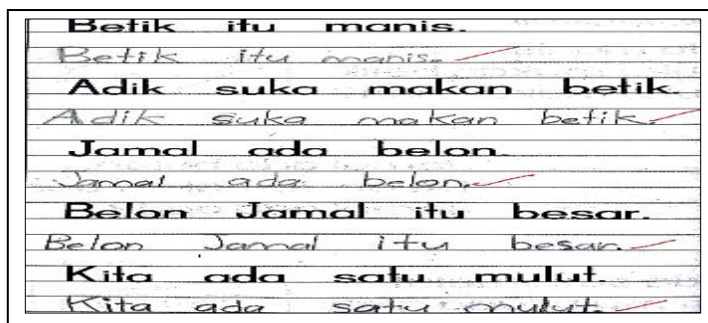 Betik itu manis.
Betik itu manis.
Adik suka makan betik.
Adik suka makan betik.
Jamal ada belon.
Jamal ada belon.
Belon Jamal itu besar.
Belon Jamal itu besar.
Kita ada satu mulut.
Kita ada satu mulut.